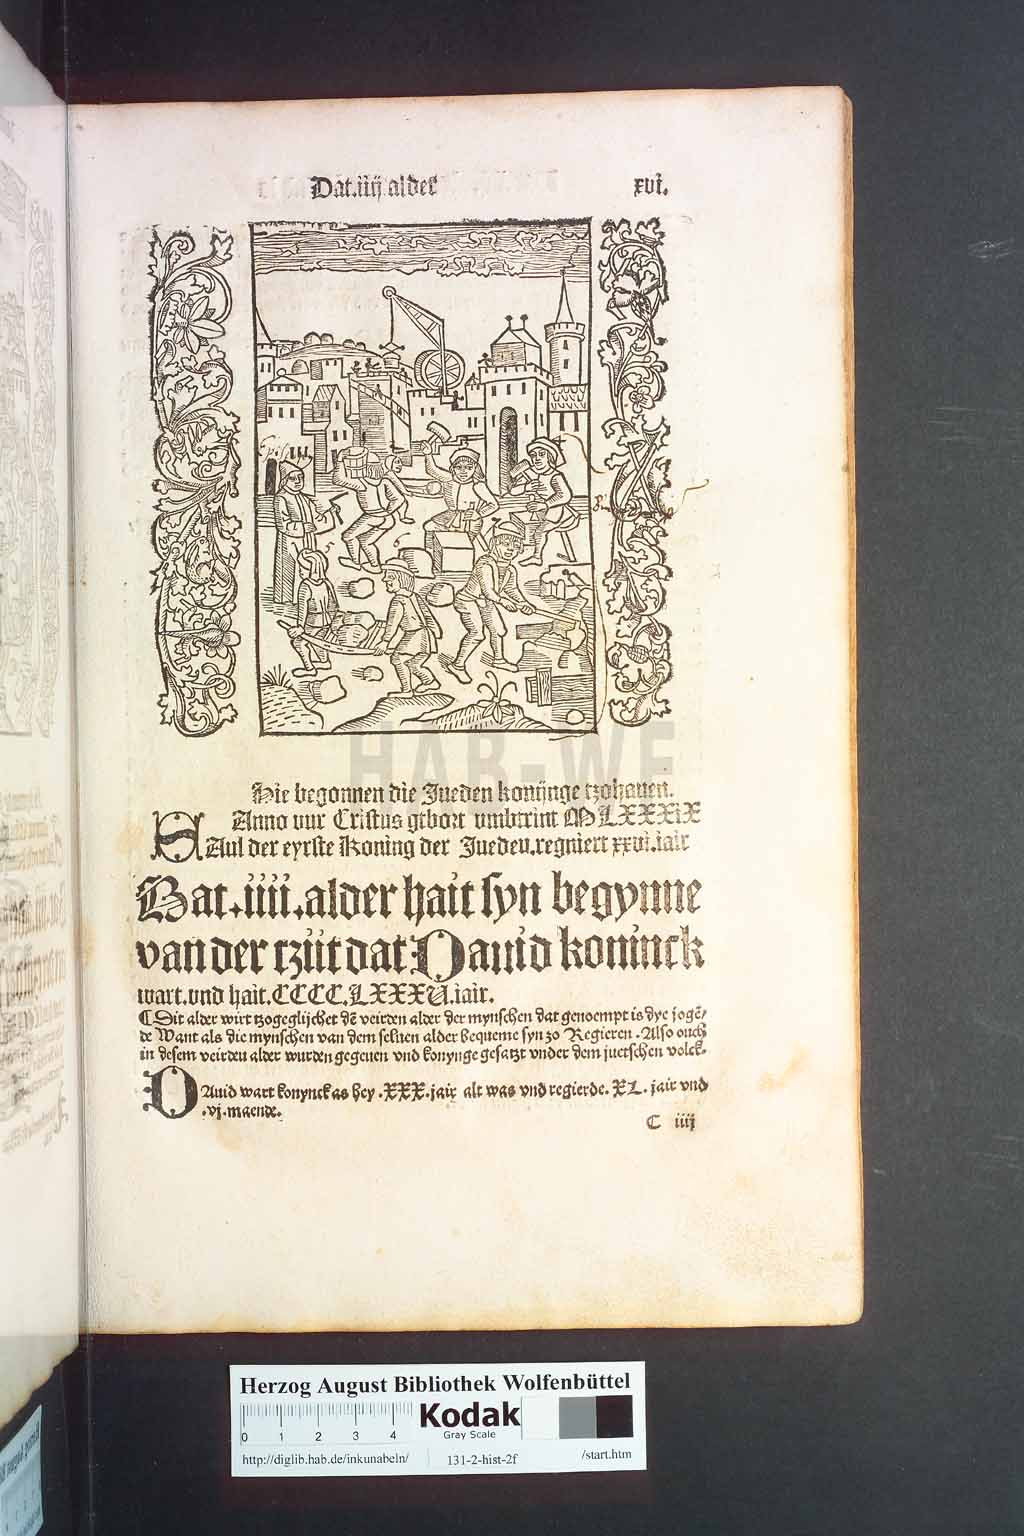 Dat.iiij alder
xvi.
HAB-WF
Hie begonnen die Jueden konijnge tzohauen.
Anno vur Cristus gebort vmbtrint MLXXXiX
SAul der eyrste Koning der Juedeu.regniert xxvi.iair
Dat.iiii.alder hait syn begynne
van der tziit dat Dauid koninck
wart.vnd hait.CCCC.LXXXV.iair.
¶ Dit alder wirt tzogeglijchet dē veirden alder der mynschen dat genoempt is dye jogē/
de Want als die mynschen van dem seluen alder bequeme syn zo Regieren. Also ouch
in desem veirdeu alder wurden gegeuen vnd konynge gesatzt vnder dem juetschen volck.
DAuid wart konynck as hey .XXX.jair alt was vnd regierde. XL. jair vnd
.vj.maende.
C iiij
Herzog August Bibliothek Wolfenbüttel
0 1 2 3 4
Kodak
Gray Scale
http://diglib.hab.de/inkunabeln/
131-2-hist-2f
/start.htm